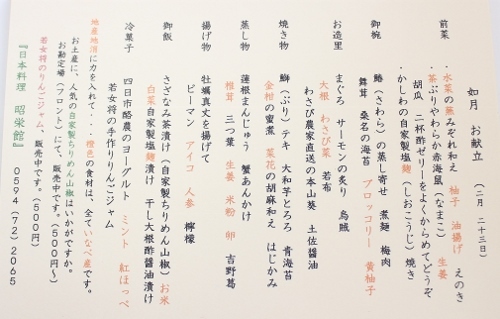 如月　お献立　（二月　二十三日）
前菜
・水菜の蕪みぞれ和え　柚子　油揚げ　えのき
・茶ぶりやわらか赤海鼠（なまこ）　生姜
胡瓜　二杯酢ゼリーをよくからめてどうぞ
・かしわの自家製塩麹（しおこうじ）焼き
御椀
鰆（さわら）の蒸し寄せ　煮麺　梅肉
舞茸　桑名の海苔　ブロッコリー　黄柚子
お造里
まぐろ　サーモンの炙り　烏賊
大根　わさび菜　若布
わさび農家直送の本山葵　土佐醤油
焼き物
鰤（ぶり）テキ　大和芋とろろ　青海苔
金柑の蜜煮　菜花の胡麻和え　はじかみ
蒸し物
蓮根まんじゅう　蟹あんかけ
椎茸　三つ葉　生姜　米粉　卵　吉野葛
揚げ物
牡蠣真丈を揚げて
ピーマン　アイコ　人参　檸檬
御飯
さざなみ茶漬け（自家製ちりめん山椒）お米
白菜自家製塩麹漬け　干し大根酢醤油漬け
冷菓子
四日市酪農のヨーグルト　ミント　紅ほっぺ
若女将の手作りりんごジャム
地産地消に力を入れて・・橙色の食材は、全ていなべ産です。
お土産に、人気の自家製ちりめん山椒はいかがですか。
お勘定場（フロント）にて、販売中です。（500円～）
若女将のりんごジャム、販売中です。（500円）
『日本料理　昭栄館』　0594（72）2065